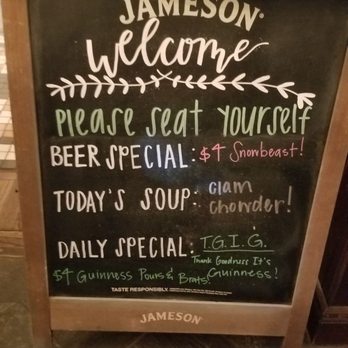 JAMESON
welcome
Please seat yourself
BEER SPECIAL: $4 Snowbeast!
TODAY'S SOUP: Clam
Chowder!
DAILY SPECIAL: T.G.I.G.
Thank Goodness It's
$4 Guinness Pours & Brats! Guinness!
TASTE RESPONSIBLY.
JAMESON